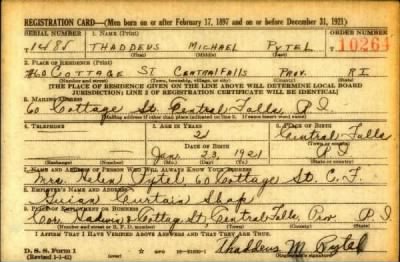 REGISTRATION CARD—(Men born on or after February 17, 1897 and on or before December 31, 1921)
SERIAL NUMBER 1. NAME (Print) ORDER NUMBER
T 1485 THADDEUS MICHAEL PYTEL 10264
(First) (Middle) (Last)
2. PLACE OF RESIDENCE (Print)
#60 COTTAGE ST CENTRAL FALLS PROV. R I
(Number and street) (Town, township, village, or city) (County) (State)
[THE PLACE OF RESIDENCE GIVEN ON THE LINE ABOVE WILL DETERMINE LOCAL BOARD
JURISDICTION; LINE 2 OF REGISTRATION CERTIFICATE WILL BE IDENTICAL]
3. MAILING ADDRESS
60 Cottage St. Central Falls R I
[Mailing address if other than place indicated on line 2. If same insert word same]
4. TELEPHONE 5. AGE IN YEARS 6. PLACE OF BIRTH
21 Central Falls
DATE OF BIRTH (Town or county)
Jan. 23, 1921 R I
(Exchange) (Number) (Mo.) (Day) (Yr.) (State or country)
7. NAME AND ADDRESS OF PERSON WHO WILL ALWAYS KNOW YOUR ADDRESS
Mrs. Helen Pytel 60 Cottage St. C. F.
8. EMPLOYER'S NAME AND ADDRESS
Curtain Shop
9. PLACE OF EMPLOYMENT OR BUSINESS
Cor. & Cottage St. Central Falls, Prov R I
(Number and street or R. F. D. number) (Town) (County) (State)
I AFFIRM THAT I HAVE VERIFIED ABOVE ANSWERS AND THAT THEY ARE TRUE.
D. S. S. Form 1
(Revised 1-1-42) Thaddeus M. Pytel
(Registrant's signature)